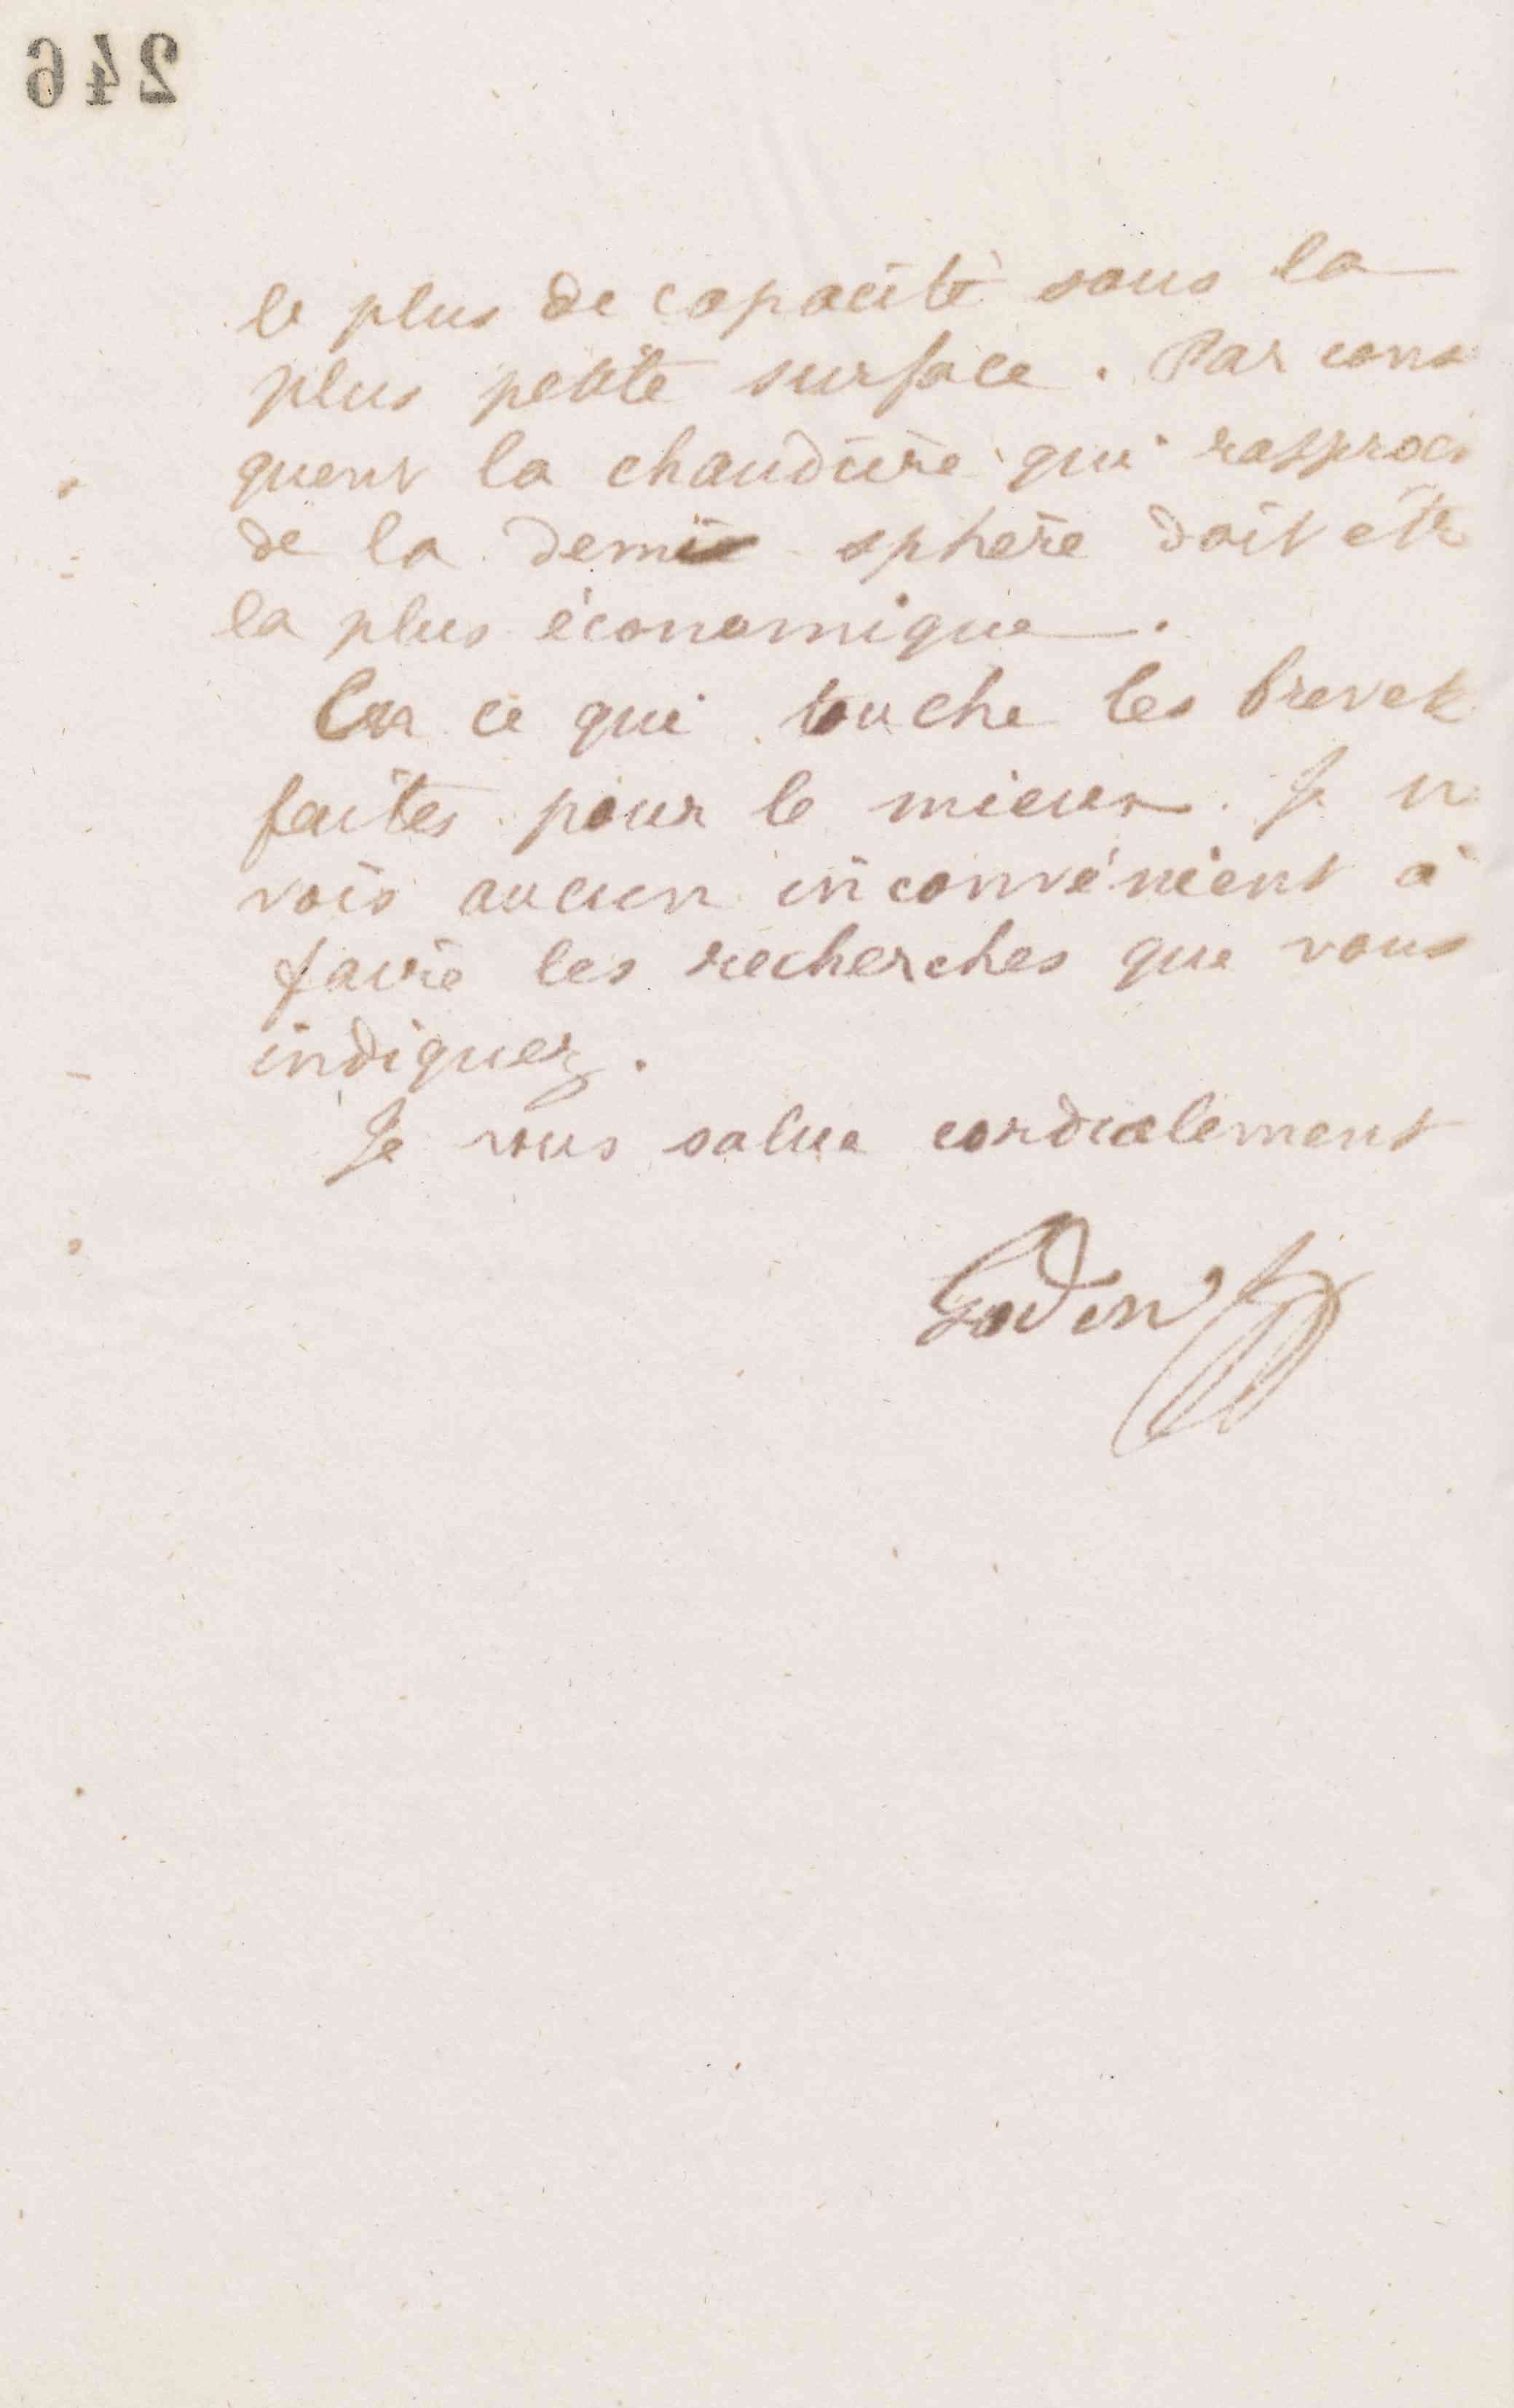 246
le plus de capacité sous la
plus petite surface. Par consé
quent la chaudière qui rapproche
de la demie sphère doit être
la plus économique.
En ce qui touche les brevets
faites pour le mieux. Je ne
vois aucun inconvénient à
faire les recherches que vous
indiquez.
Je vous salue cordialement
Godin